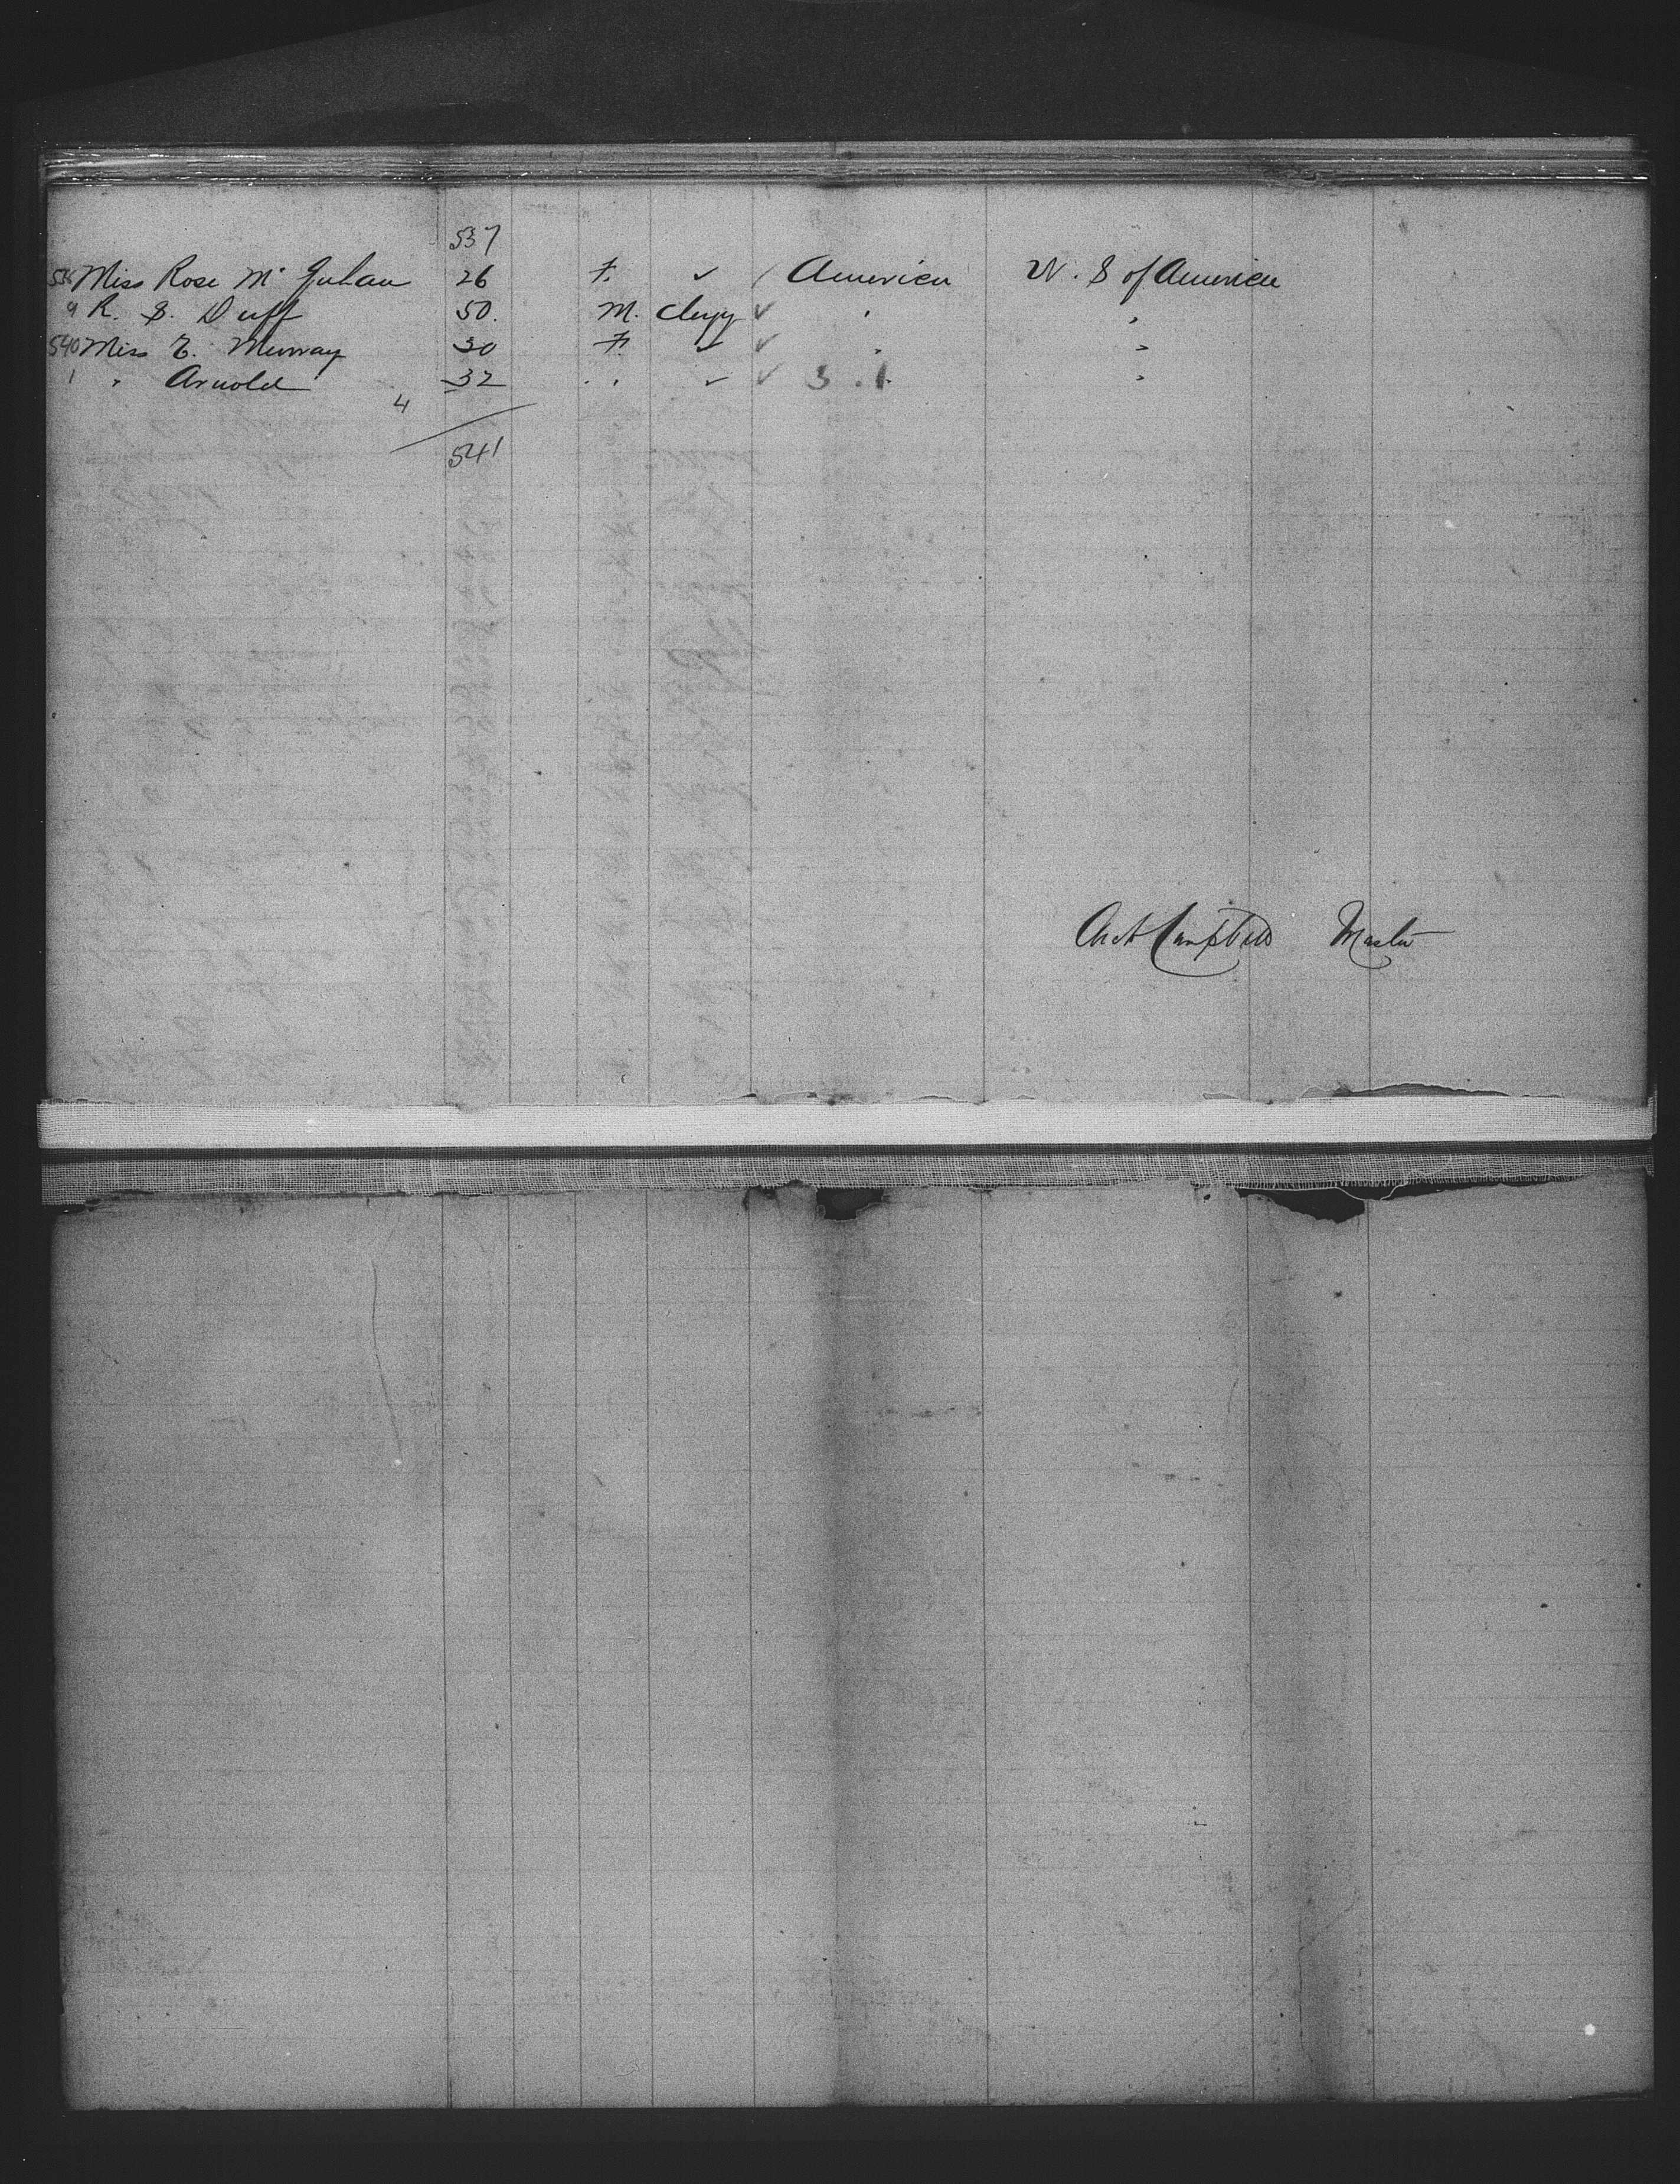 537
538 Miss Rose Mc 26 F. ✓ / America U. S of America
9 R. S. Duff 50. M. Clergy ✓ " "
540 Miss E. Murray 30 F. ✓ ✓ " "
1 " Arnold 32 " " ✓ ✓ "
4
541
Arch Campbell Master